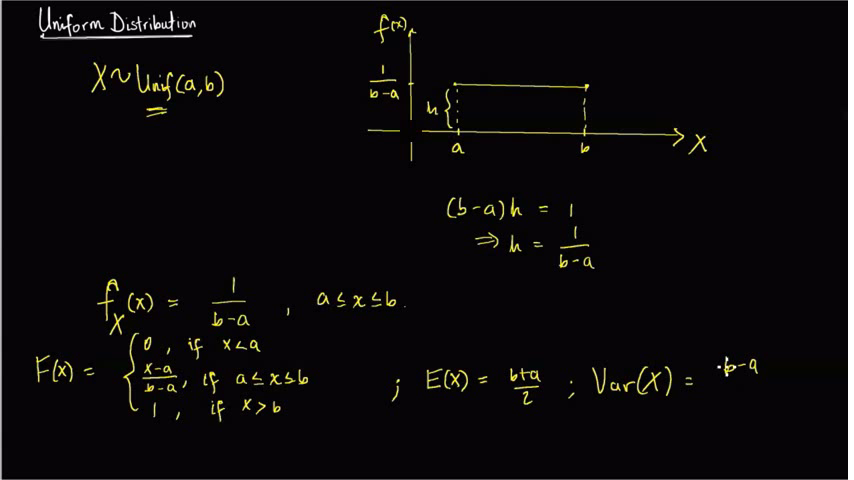 Uniform Distribution
X ~ Unif(a,b)
f(x)
1/(b-a)
h {
a b X
(b-a)h = 1
⇒ h = 1/(b-a)
f_X(x) = 1/(b-a) , a ≤ x ≤ b.
F(x) = { 0 , if x < a
(x-a)/(b-a) , if a ≤ x ≤ b
1 , if x > b
; E(X) = (b+a)/2 ; Var(X) = b-a